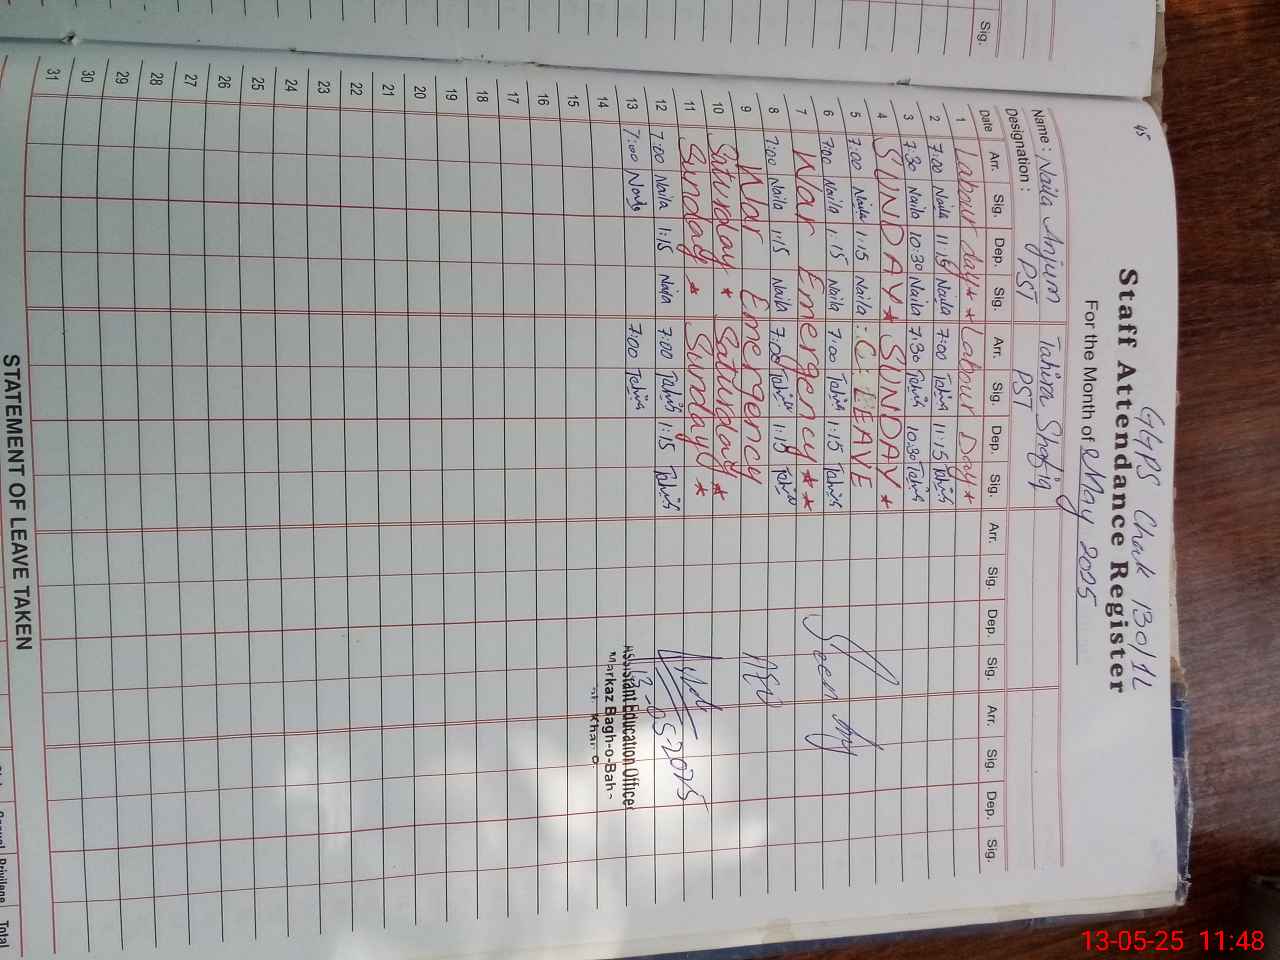 Sig.
45
GGPS Chak 130/1L
Staff Attendance Register
For the Month of May 2025
Name : Naila Anjum Tahira Shafiq
Designation : PST PST
Date Arr. Sig. Dep. Sig. Arr. Sig. Dep. Sig. Arr. Sig. Dep. Sig. Arr. Sig. Dep. Sig.
1 Labour day * * Labour Day *
2 7:00 Naila 11:15 Naila 7:00 Tahira 11:15 Tahira
3 7:30 Naila 10:30 Naila 7:30 Tahira 10:30 Tahira
4 SUNDAY * SUNDAY *
5 7:00 Naila 1:15 Naila C. LEAVE
6 7:00 Naila 1:15 Naila 7:00 Tahira 1:15 Tahira
7 War Emergency * *
8 7:00 Naila 1:15 Naila 7:00 Tahira 1:15 Tahira
9 War Emergency
10 Saturday * Saturday *
11 Sunday * Sunday *
12 7:00 Naila 1:15 Naila 7:00 Tahira 1:15 Tahira
13 7:00 Naila 7:00 Tahira
14
15
16
17
18
19
20
21
22
23
24
25
26
27
28
29
30
31
Seen by
AEO
13-05-2025
Assistant Education Officer
Markaz Bagh-o-Bah
STATEMENT OF LEAVE TAKEN
Casual Privilege Total
13-05-25 11:48